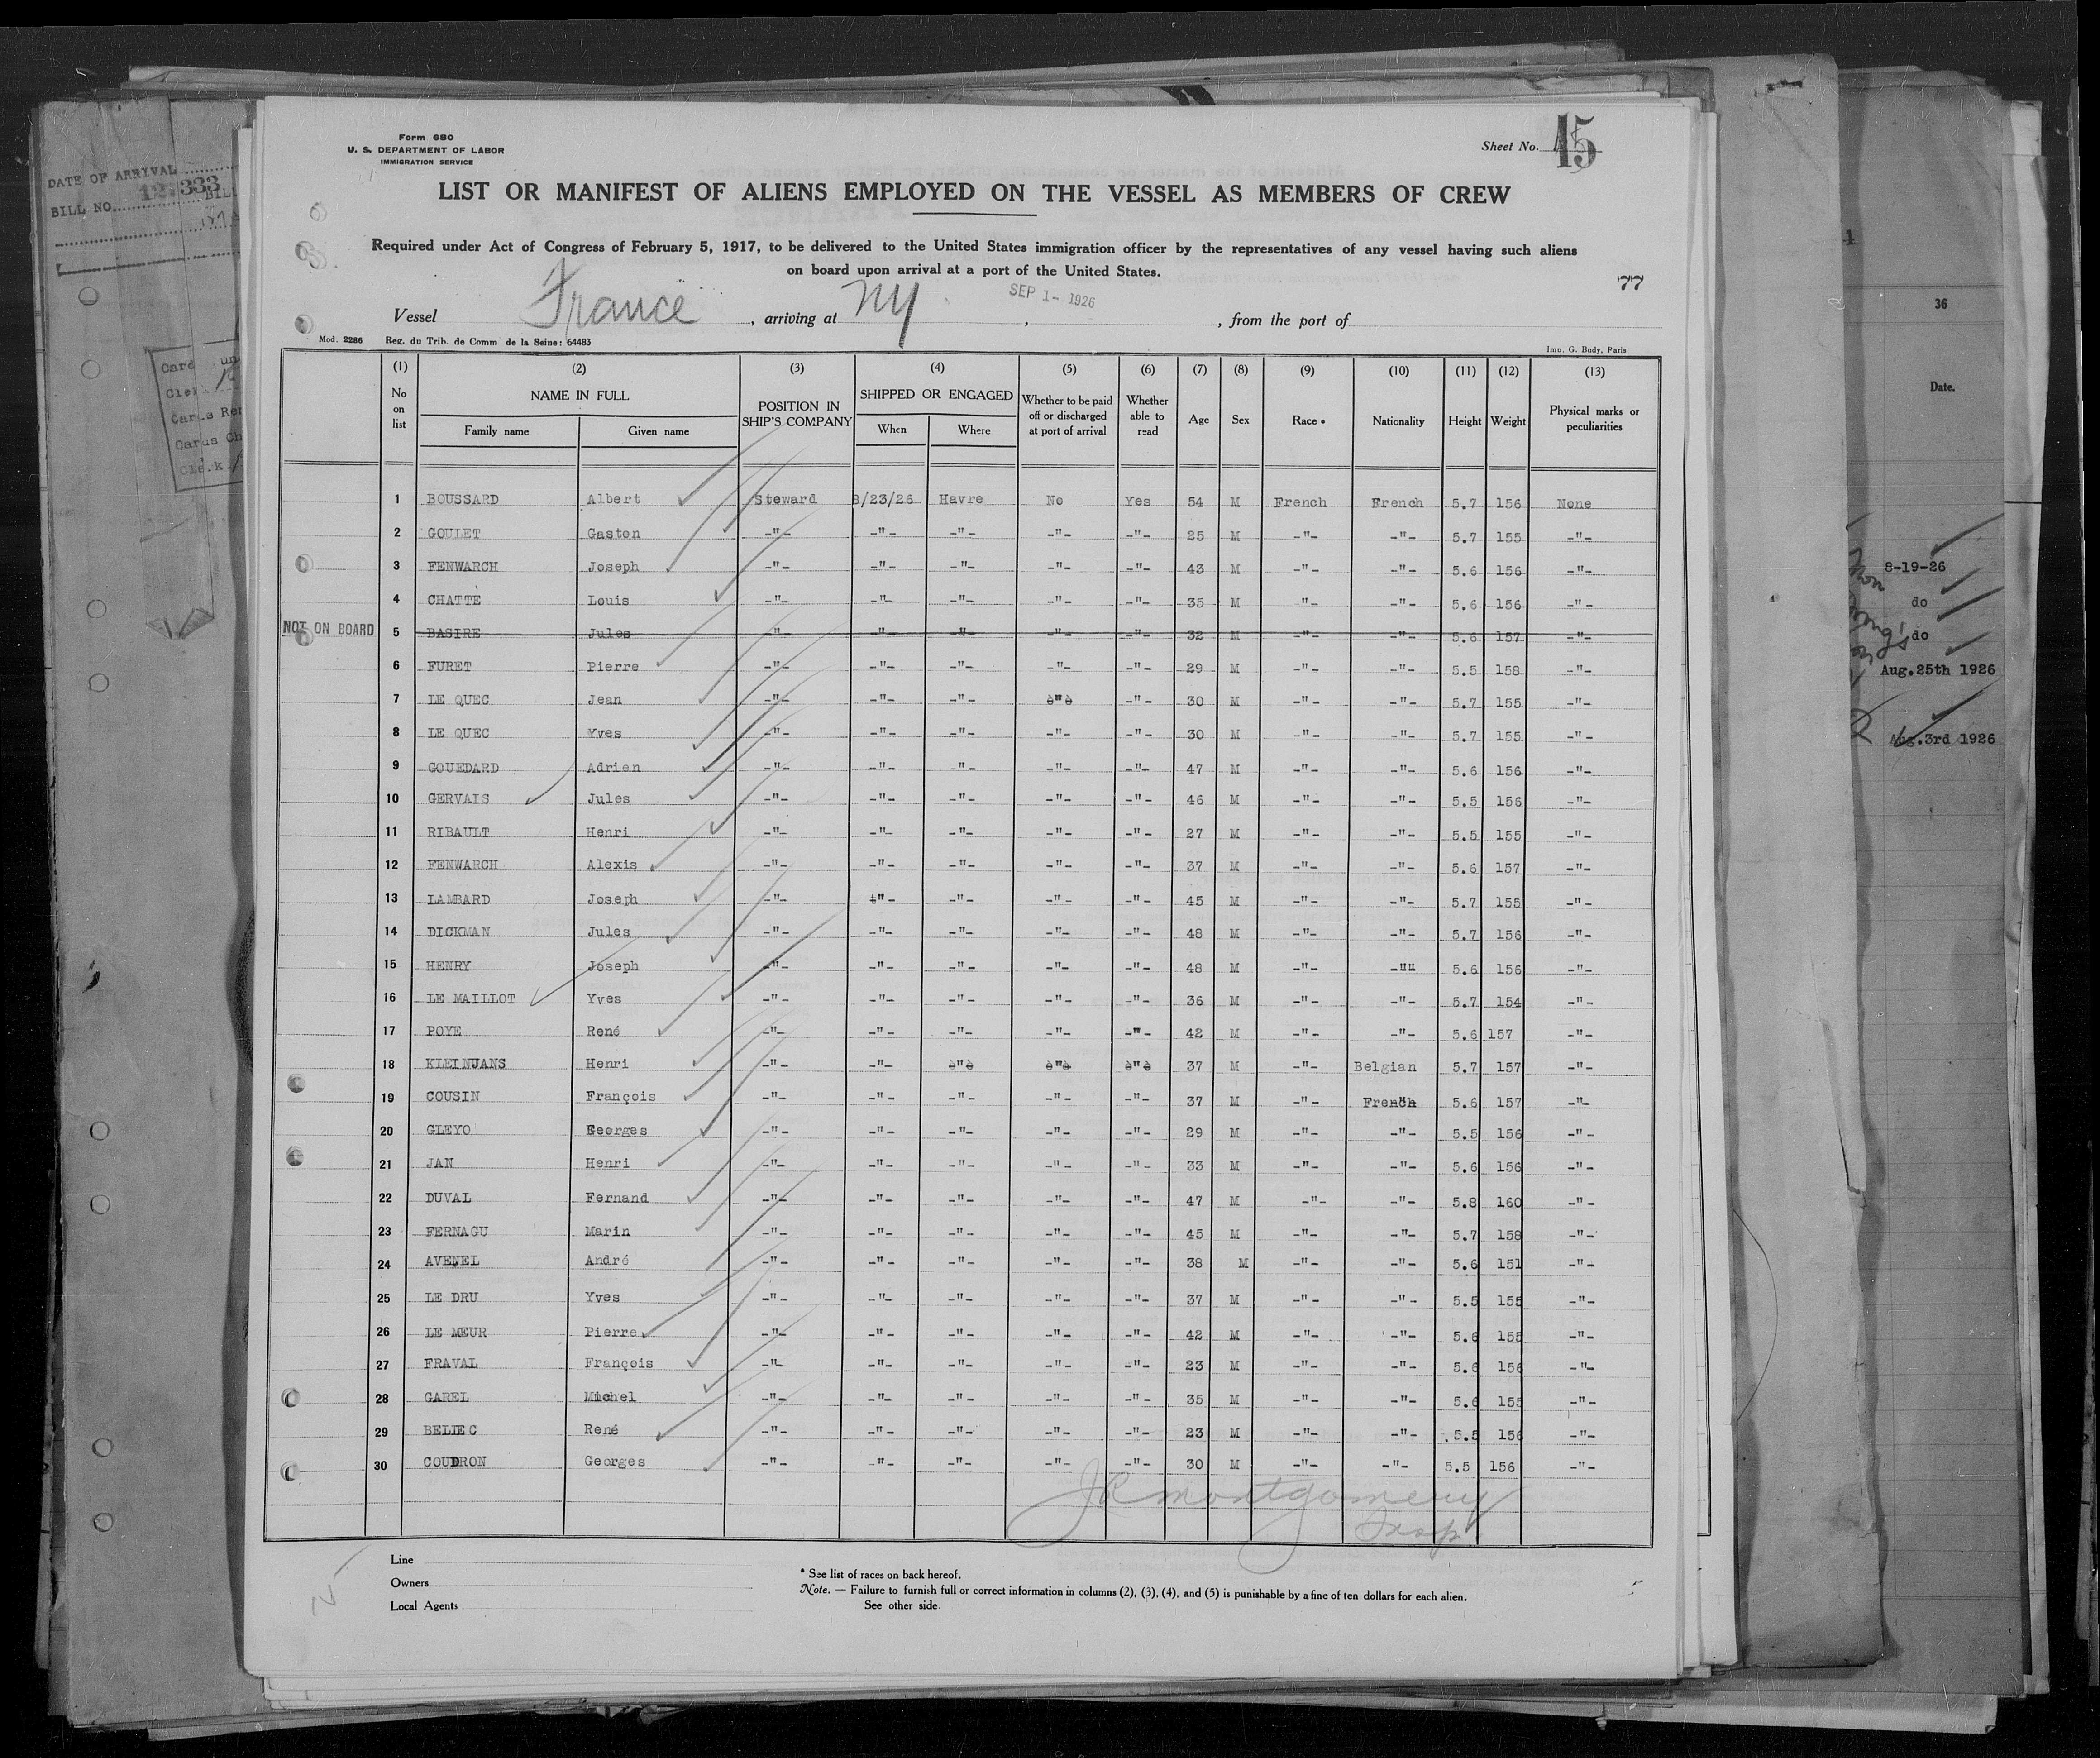 Form 680
U. S. DEPARTMENT OF LABOR
IMMIGRATION SERVICE
Sheet No. 15
LIST OR MANIFEST OF ALIENS EMPLOYED ON THE VESSEL AS MEMBERS OF CREW
Required under Act of Congress of February 5, 1917, to be delivered to the United States immigration officer by the representatives of any vessel having such aliens
on board upon arrival at a port of the United States.
77
Vessel France, arriving at NY, SEP 1- 1926, from the port of
Mod. 2286 Reg. du Trib. de Comm de la Seine: 64483 Imp. G. Budy, Paris
(1) (2) (3) (4) (5) (6) (7) (8) (9) (10) (11) (12) (13)
No on list NAME IN FULL POSITION IN SHIP'S COMPANY SHIPPED OR ENGAGED Whether to be paid off or discharged at port of arrival Whether able to read Age Sex Race * Nationality Height Weight Physical marks or peculiarities
Family name Given name When Where
1 BOUSSARD Albert Steward 8/23/26 Havre No Yes 54 M French French 5.7 156 None
2 GOULET Gaston -"- -"- -"- -"- -"- 25 M -"- -"- 5.7 155 -"-
3 FENWARCH Joseph -"- -"- -"- -"- -"- 43 M -"- -"- 5.6 156 -"-
4 CHATTE Louis -"- -"- -"- -"- -"- 35 M "- -"- 5.6 156 -"-
NOT ON BOARD 5 BASIRE Jules -"- -"- -"- -"- -"- 32 M -"- -"- 5.6 157 -"-
6 FURET Pierre -"- -"- -"- -"- -"- 29 M -"- -"- 5.5 158 -"-
7 LE QUEC Jean -"- -"- -"- -"- -"- 30 M -"- -"- 5.7 155 -"-
8 LE QUEC Yves -"- -"- -"- -"- -"- 30 M -"- -"- 5.7 155 -"-
9 GOUEDARD Adrien -"- -"- -"- -"- -"- 47 M -"- -"- 5.6 156 -"-
10 GERVAIS Jules -"- -"- -"- -"- -"- 46 M -"- -"- 5.5 156 -"-
11 RIBAULT Henri -"- -"- -"- -"- -"- 27 M -"- -"- 5.5 155 -"-
12 FENWARCH Alexis -"- -"- -"- -"- -"- 37 M -"- -"- 5.6 157 -"-
13 LAMBARD Joseph -"- -"- -"- -"- -"- 45 M -"- -"- 5.7 155 -"-
14 DICKMAN Jules -"- -"- -"- -"- -"- 48 M -"- -"- 5.7 156 -"-
15 HENRY Joseph -"- -"- -"- -"- -"- 48 M -"- -"" 5.6 156 -"-
16 LE MAILLOT Yves -"- -"- -"- -"- -"- 36 M -"- -"- 5.7 154 -"-
17 POYE René -"- -"- -"- -"- -"- 42 M -"- -"- 5.6 157 -"-
18 KLEINJANS Henri -"- -"- -"- -"- -"- 37 M -"- Belgian 5.7 157 -"-
19 COUSIN François -"- -"- -"- -"- -"- 37 M -"- French 5.6 157 -"-
20 GLEYO Georges -"- -"- -"- -"- -"- 29 M -"- -"- 5.5 156 -"-
21 JAN Henri -"- -"- -"- -"- -"- 33 M -"- -"- 5.6 156 -"-
22 DUVAL Fernand -"- -"- -"- -"- -"- 47 M -"- -"- 5.8 160 -"-
23 FERNAGU Marin -"- -"- -"- -"- -"- 45 M -"- -"- 5.7 158 -"-
24 AVENEL André -"- -"- -"- -"- -"- 38 M -"- -"- 5.6 151 -"-
25 LE DRU Yves -"- -"- -"- -"- -"- 37 M -"- -"- 5.5 155 -"-
26 LE MEUR Pierre -"- -"- -"- -"- -"- 42 M -"- -"- 5.6 155 -"-
27 FRAVAL François -"- -"- -"- -"- -"- 23 M -"- -"- 5.6 156 -"-
28 GAREL Michel -"- -"- -"- -"- -"- 35 M -"- -"- 5.6 155 -"-
29 BELIEC René -"- -"- -"- -"- -"- 23 M -"- -"- 5.5 156 -"-
30 COUDRON Georges -"- -"- -"- -"- -"- 30 M -"- -"- 5.5 156 -"-
JR Montgomery
Insp
Line
Owners
Local Agents
* See list of races on back hereof.
Note. — Failure to furnish full or correct information in columns (2), (3), (4), and (5) is punishable by a fine of ten dollars for each alien.
See other side.
DATE OF ARRIVAL
BILL NO. 12:333 BILL
Card
Clerk
Cards
Cards Ch
Clerk
36
Date.
8-19-26
do
do
Aug.25th 1926
Aug.3rd 1926